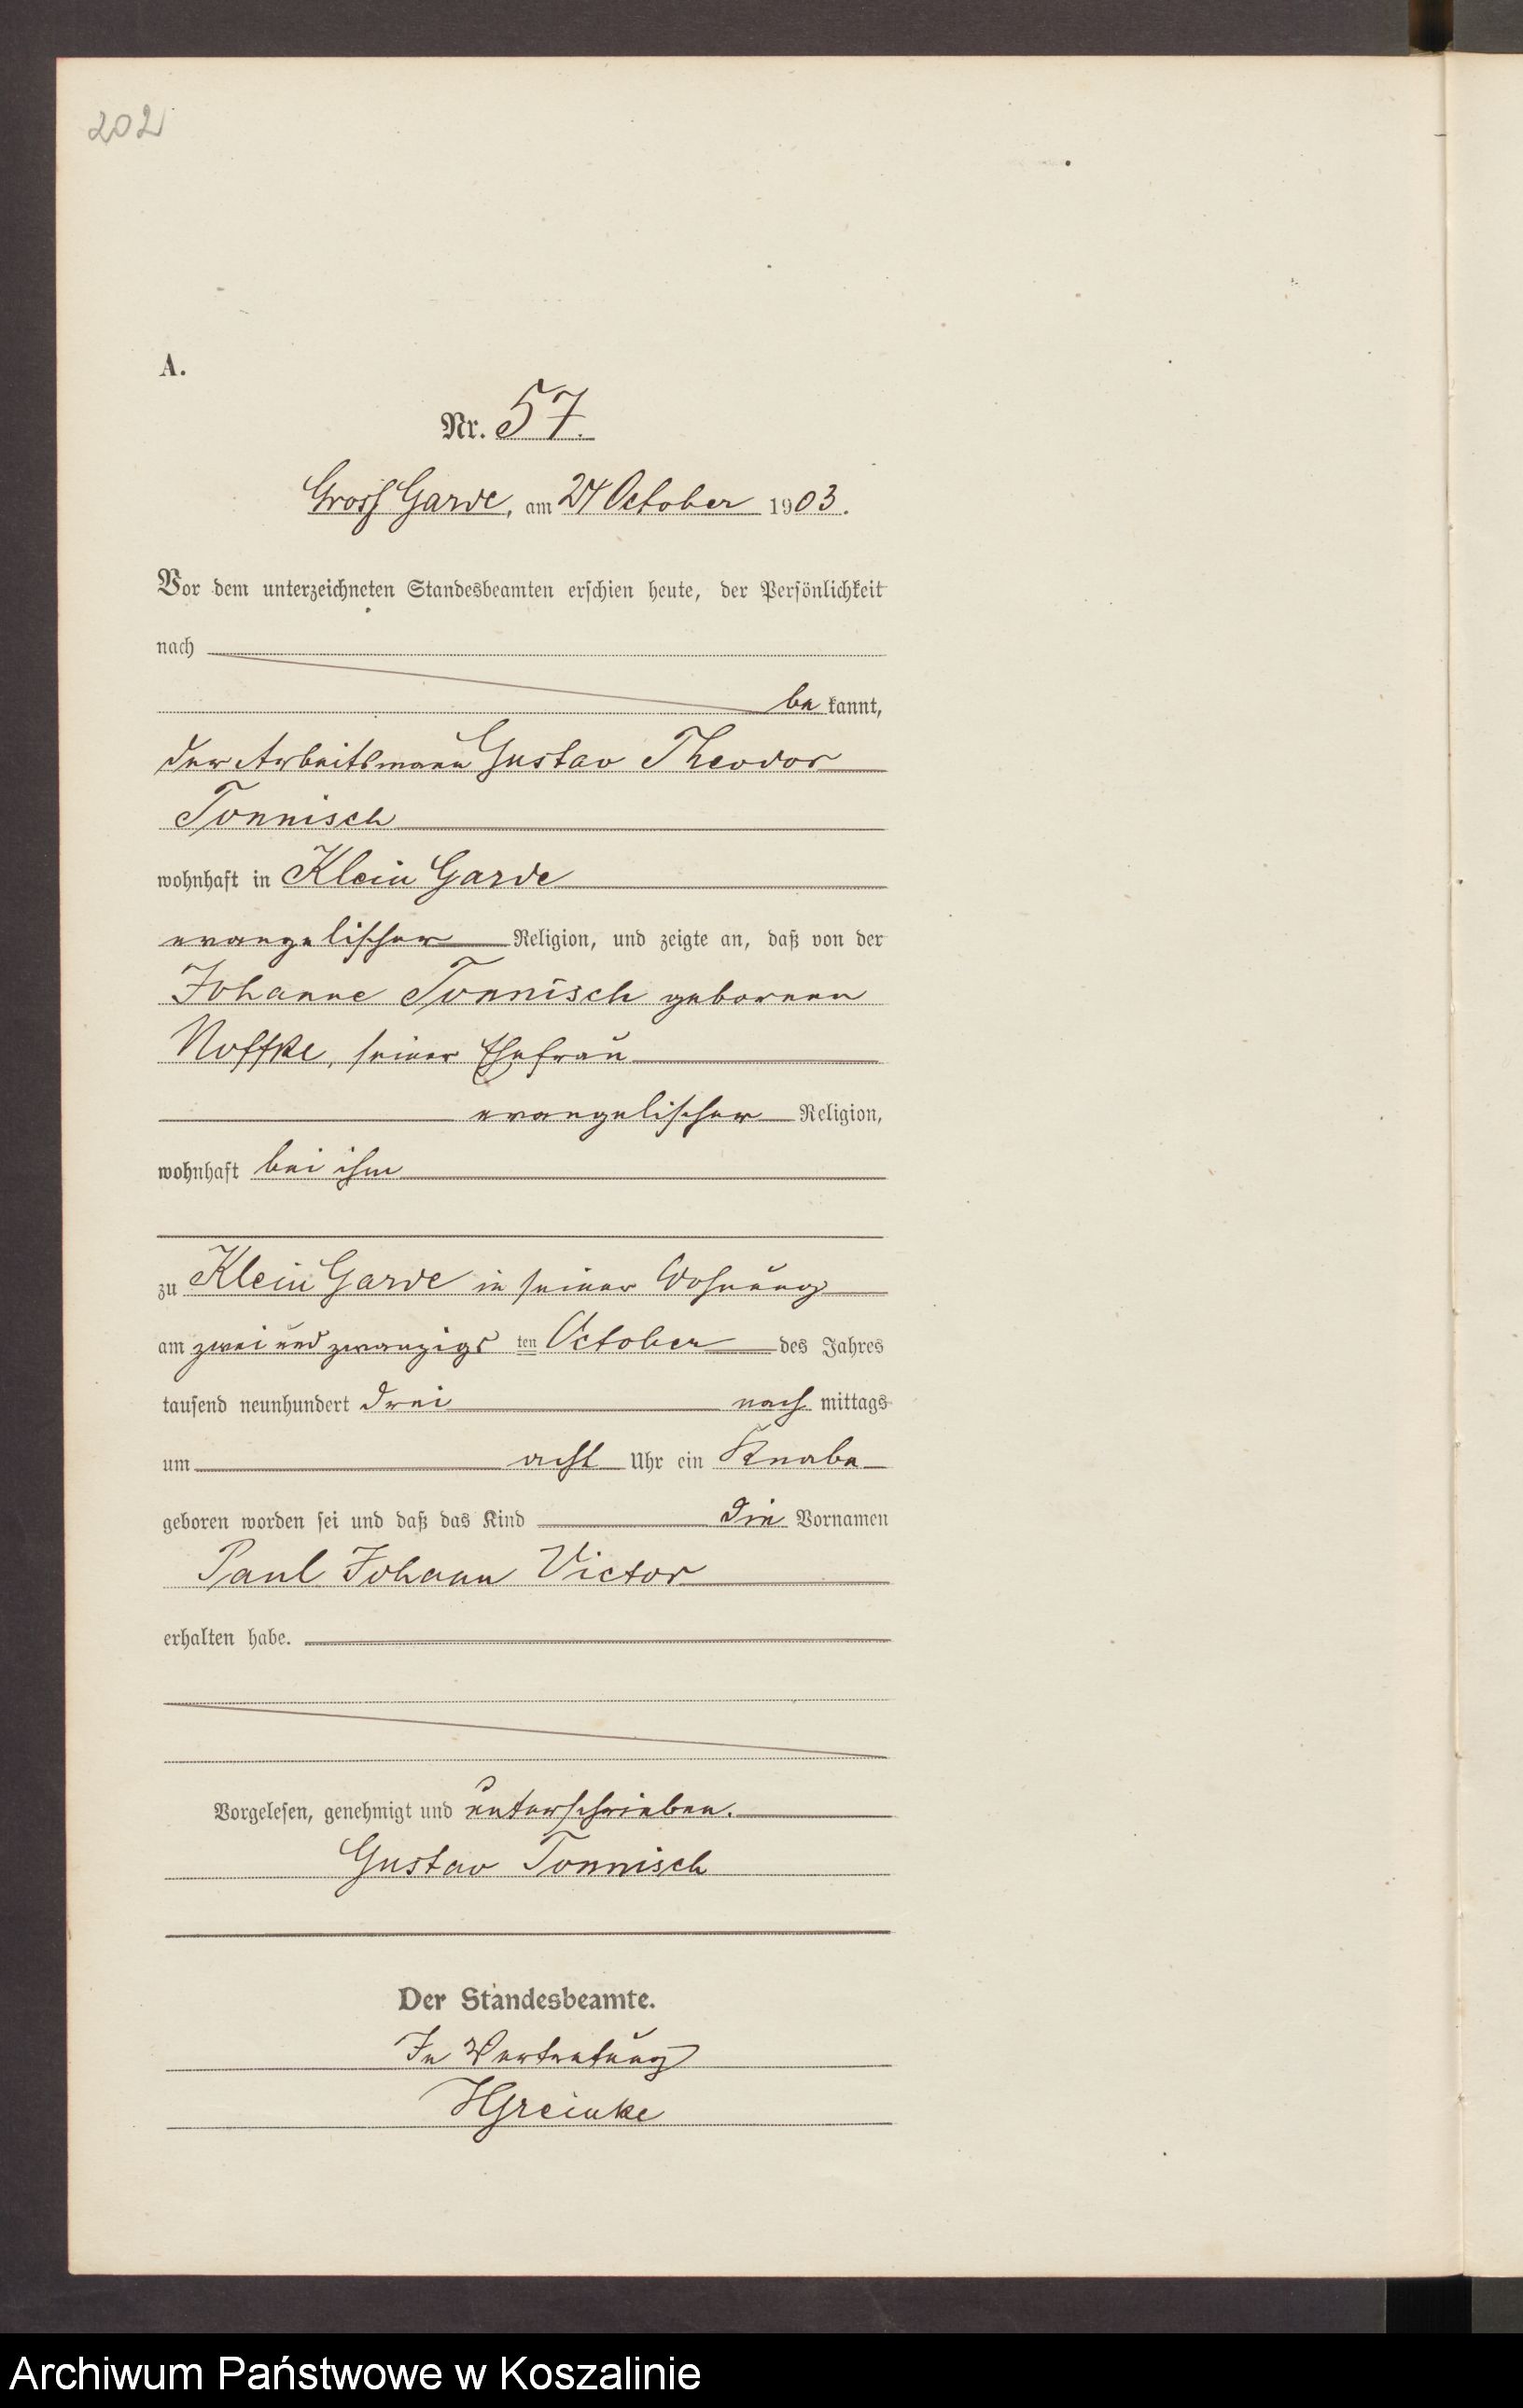 202
A.
Nr. 57.
Gross Garde, am 24 October 1903.
Vor dem unterzeichneten Standesbeamten erschien heute, der Persönlichkeit
nach
be kannt,
der Arbeitsmann Gustav Theodor
Tonnisch
wohnhaft in Klein Garde
evangelischer Religion, und zeigte an, daß von der
Johanne Tonnisch geborenen
Noffke, seiner Ehefrau
evangelischer Religion,
wohnhaft bei ihm
zu Klein Garde in seiner Wohnung
am zwei und zwanzigs ten October des Jahres
tausend neunhundert drei nach mittags
um acht Uhr ein Knabe
geboren worden sei und daß das Kind die Vornamen
Paul Johann Victor
erhalten habe.
Vorgelesen, genehmigt und unterschrieben.
Gustav Tonnisch
Der Standesbeamte.
In Vertretung
HGreinke
Archiwum Państwowe w Koszalinie